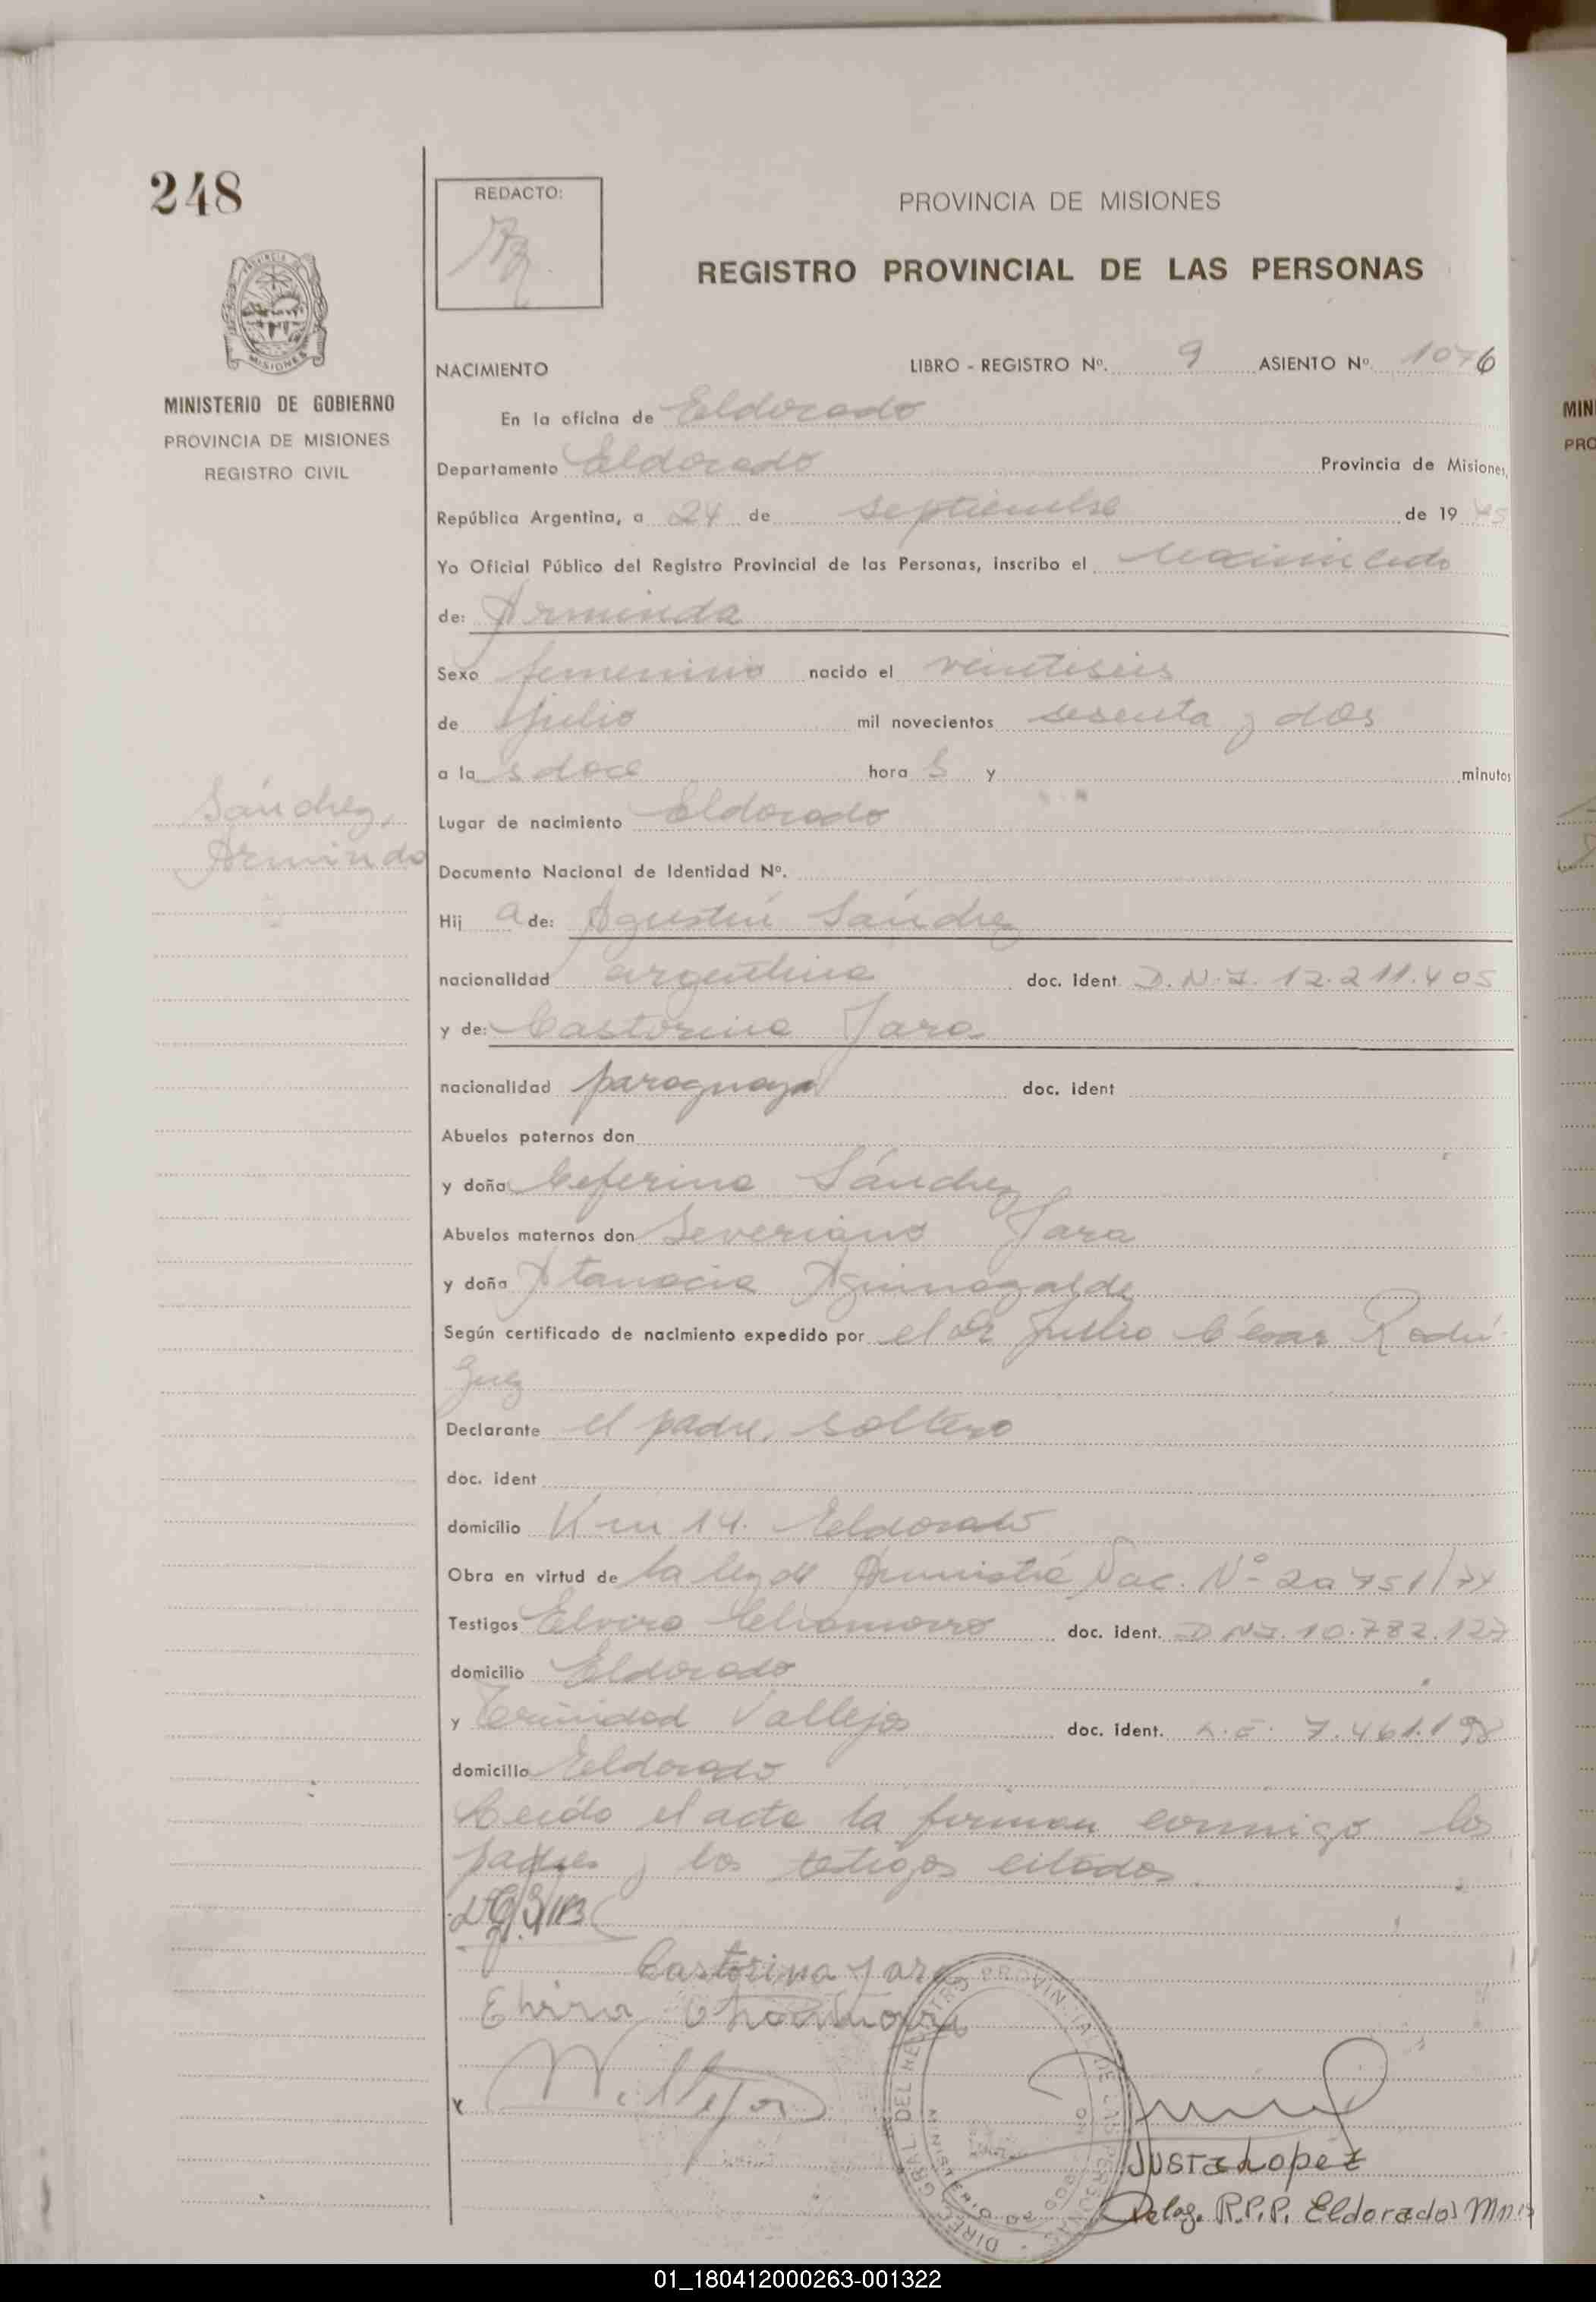 248
REDACTO:
PROVINCIA DE MISIONES
REGISTRO PROVINCIAL DE LAS PERSONAS
MISIONES
MINISTERIO DE GOBIERNO
PROVINCIA DE MISIONES
REGISTRO CIVIL
NACIMIENTO LIBRO - REGISTRO Nº. 9 ASIENTO Nº. 1076
En la oficina de Eldorado
Departamento Eldorado Provincia de Misiones,
República Argentina, a 24 de septiembre de 19 75
Yo Oficial Público del Registro Provincial de las Personas, inscribo el Nacimiento
de: Arminda
Sexo femenino nacido el veintiseis
de Julio mil novecientos sesenta y dos
a la s doce hora s y minutos
Sánchez,
Arminda
Lugar de nacimiento Eldorado
Documento Nacional de Identidad Nº.
Hij a de: Agustín Sánchez
nacionalidad argentina doc. ident D.N.I. 12.211.405
y de: Castorina Jara
nacionalidad paraguaya doc. ident
Abuelos paternos don
y doña Ceferina Sánchez
Abuelos maternos don Severiano Jara
y doña Atanacia
Según certificado de nacimiento expedido por el Dr Julio César Rodrí-
guez
Declarante el padre, soltero
doc. ident
domicilio Km 14. Eldorado
Obra en virtud de la ley de Amnistía Nac. Nº 20751/74
Testigos Elvira Chamorro doc. ident. D.N.I. 10.782.127
domicilio Eldorado
y Trinidad Vallejos doc. ident. L.E. 7.461.198
domicilio Eldorado
Leída el acta la firman conmigo los
padres y los testigos citados
Castorina Jara
Elvira Chamorro
Justa Lopez
Deleg. R.P.P. Eldorado Mnes
DIREC. GRAL. DEL REGISTRO PROVINCIAL DE LAS PERSONAS
01_180412000263-001322